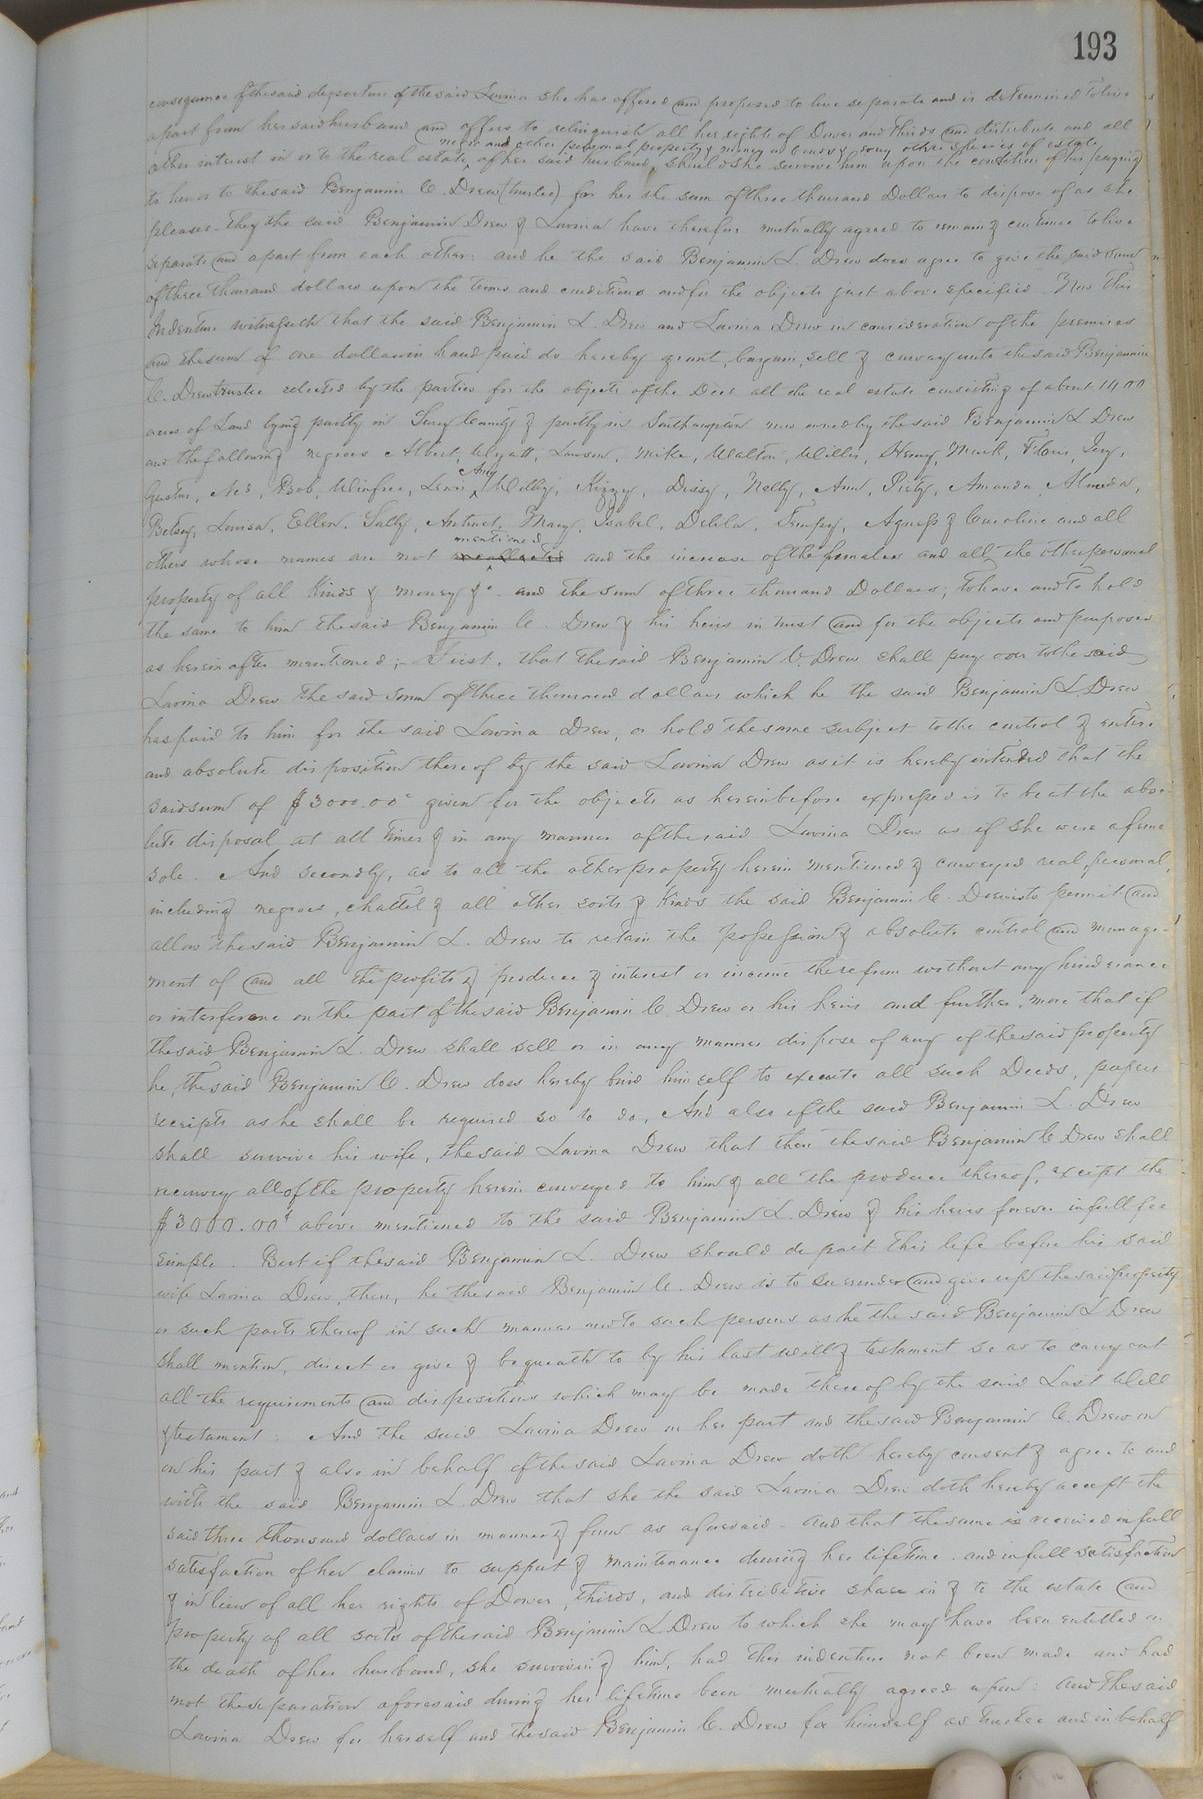 193
consequence of the said departure of the said Lavina she has offered and proposed to live separate and is determined to live
apart from her said husband and offers to relinquish all her rights of Dower and thirds and distribute and all
negro and other personal property & money or bonds & or any other species of estate
other interest in or to the real estate, of her said husband, should she survive him upon the condition of his paying
to her or to the said Benjamin C. Drew (trustee) for her the sum of three thousand Dollars to dispose of as she
pleases. They the said Benjamin Drew & Lavina have therefore mutually agreed to remain & continue to live
separate and apart from each other: and he the said Benjamin L. Drew does agree to give the said sum
of three thousand dollars upon the terms and conditions and for the objects just above specified. Now this
Indenture witnesseth that the said Benjamin L. Drew and Lavina Drew in consideration of the premises
and the sum of one dollar in hand paid do hereby grant, bargain, sell & convey unto the said Benjamin
C. Drew trustee selected by the parties for the objects of the Deed all the real estate consisting of about 1400
acres of Land lying partly in Surry County & partly in Southampton now owned by the said Benjamin L Drew
and the following negroes Albert, Wyatt, Lawson, Mike, Walton, Willis, Henry, Mark, Titus, Ivy,
Amy
Gustus, Ned, Bob, Winfree, Lewis, Milly, Kizzy, Dissy, Nelly, Ann, Piety, Amanda Almeda,
Betsey, Louisa, Ellen, Sally, Mary, Isabel, Delila, Tempy, Agness & Caroline and all
mentioned
others whose names are not recollected and the increase of the females and all the other personal
property of all kinds & money &c. and the sum of three thousand Dollars; to have and to hold
the same to him the said Benjamin C. Drew & his heirs in trust and for the objects and purposes
as herein after mentioned; First, that the said Benjamin C. Drew shall pay over to the said
Lavina Drew the said sum of three thousand dollars which he the said Benjamin L Drew
has paid to him for the said Lavina Drew, or hold the same subject to the control & entire
and absolute disposition thereof by the said Lavina Drew as it is hereby intended that the
said sum of $3000.00c given for the objects as hereinbefore expressed is to be at the abso-
lute disposal at all times & in any manner of the said Lavina Drew as if she were a feme
sole. And secondly, as to all the other property herein mentioned & conveyed real, personal,
including negroes, chattel & all other sorts & kinds the said Benjamin C. Drew is to permit and
allow the said Benjamin L. Drew to retain the possession & absolute control and manage-
ment of and all the profits & produce & interest or income therefrom without any hinderance
or interference on the part of the said Benjamin C. Drew or his heirs and further more that if
the said Benjamin L. Drew shall sell or in any manner dispose of any of the said property
he, the said Benjamin C. Drew does hereby bind himself to execute all such Deeds, papers
receipts as he shall be required so to do, And also if the said Benjamin L. Drew
shall survive his wife, the said Lavina Drew that then the said Benjamin C Drew shall
reconvey all of the property herein conveyed to him & all the produce thereof, except the
$3000.00c above mentioned to the said Benjamin L. Drew & his heirs forever in full fee
simple. But if the said Benjamin L. Drew should depart this life before his said
wife Lavina Drew, then, he the said Benjamin C. Drew is to surrender and give up the said property
or such parts thereof in such manner and to such persons as he the said Benjamin L Drew
shall mention, direct or give & bequeath to by his last will & testament so as to carry out
all the requirements and dispositions which may be made thereof by the said Last Will
& testament: And the said Lavina Drew on her part and the said Benjamin C. Drew on
on his part & also in behalf of the said Lavina Drew doth hereby consent & agree to and
with the said Benjamin L Drew that she the said Lavina Drew doth hereby accept the
said three thousand dollars in manner & form as aforesaid. and that the same is received in full
satisfaction of her claims to support & maintenance during her lifetime. and in full satisfaction
& in lieu of all her rights of Dower, thirds, and distributive share in & to the estate and
property of all sorts of the said Benjamin L Drew to which she may have been entitled on
the death of her husband, she surviving him, had this indenture not been made and had
not the separation aforesaid during her lifetime been mutually agreed upon: and the said
Lavina Drew for herself and the said Benjamin C. Drew for himself as trustee and in behalf